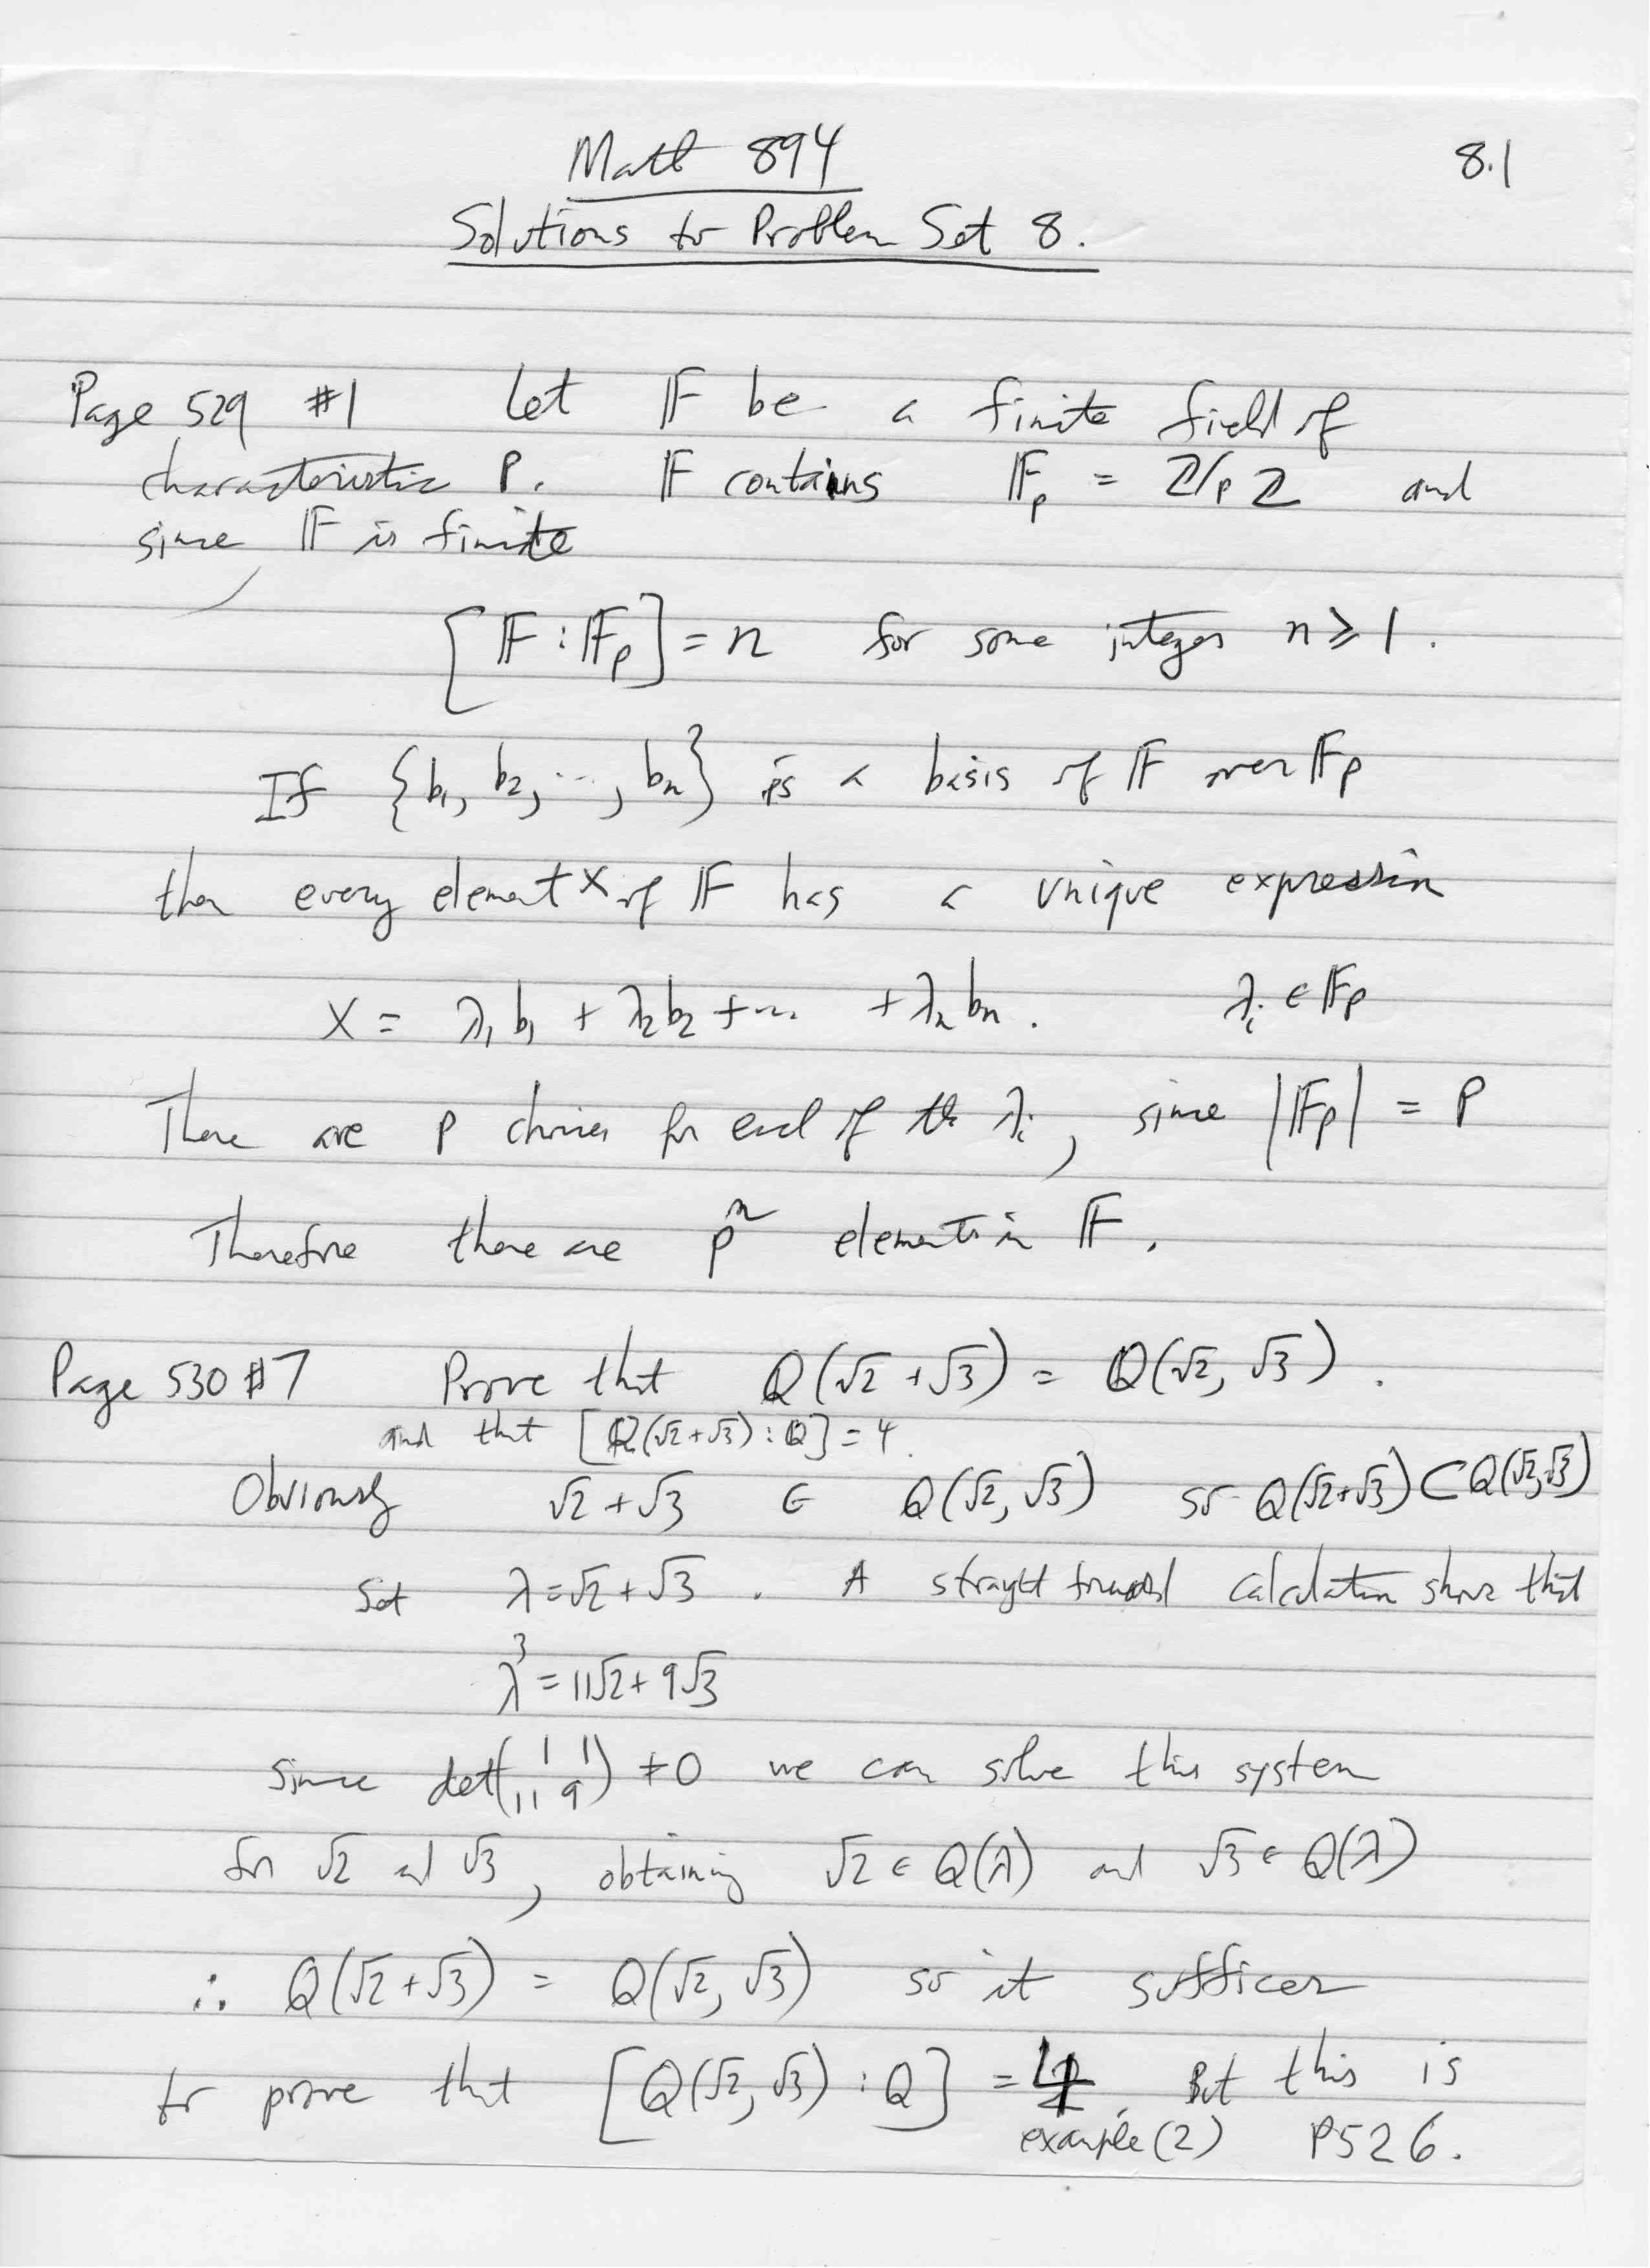 Math 894
8.1
Solutions to Problem Set 8.
Page 529 #1 Let 𝔽 be a finite field of
characteristic p. 𝔽 contains 𝔽_p = ℤ/pℤ and
since 𝔽 is finite
[𝔽 : 𝔽_p] = n for some integer n ≥ 1.
If {b₁, b₂, ..., bₙ} is a basis of 𝔽 over 𝔽_p
then every element x of 𝔽 has a unique expression
x = λ₁b₁ + λ₂b₂ + ... + λₙbₙ. λᵢ ∈ 𝔽_p
There are p choices for each of the λᵢ, since |𝔽_p| = p
Therefore there are pⁿ elements in 𝔽.
Page 530 #7 Prove that ℚ(√2 + √3) = ℚ(√2, √3).
and that [ℚ(√2+√3) : ℚ] = 4.
Obviously √2 + √3 ∈ ℚ(√2, √3) so ℚ(√2+√3) ⊂ ℚ(√2, √3)
Set λ = √2 + √3. A straight forward calculation shows that
λ³ = 11√2 + 9√3
Since det(1 1; 11 9) ≠ 0 we can solve this system
for √2 and √3, obtaining √2 ∈ ℚ(λ) and √3 ∈ ℚ(λ)
∴ ℚ(√2 + √3) = ℚ(√2, √3) so it suffices
to prove that [ℚ(√2, √3) : ℚ] = 4. But this is
example (2) P526.